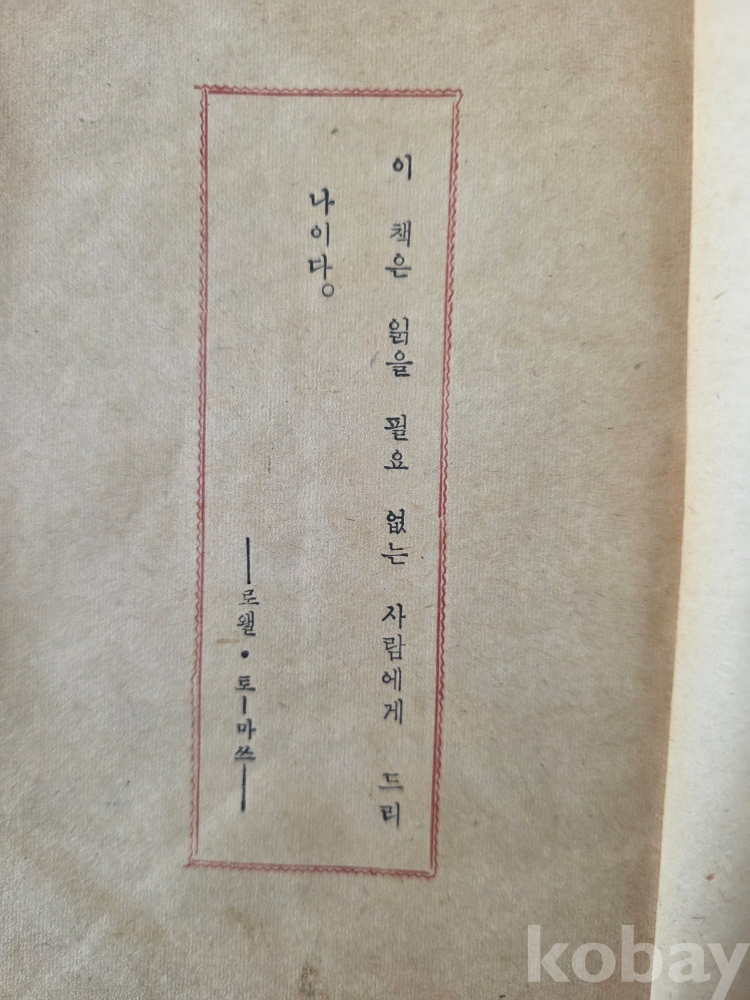 이 책은 읽을 필요 없는 사람에게 드리
나이다。
―로왤・토―마쓰―
kobay